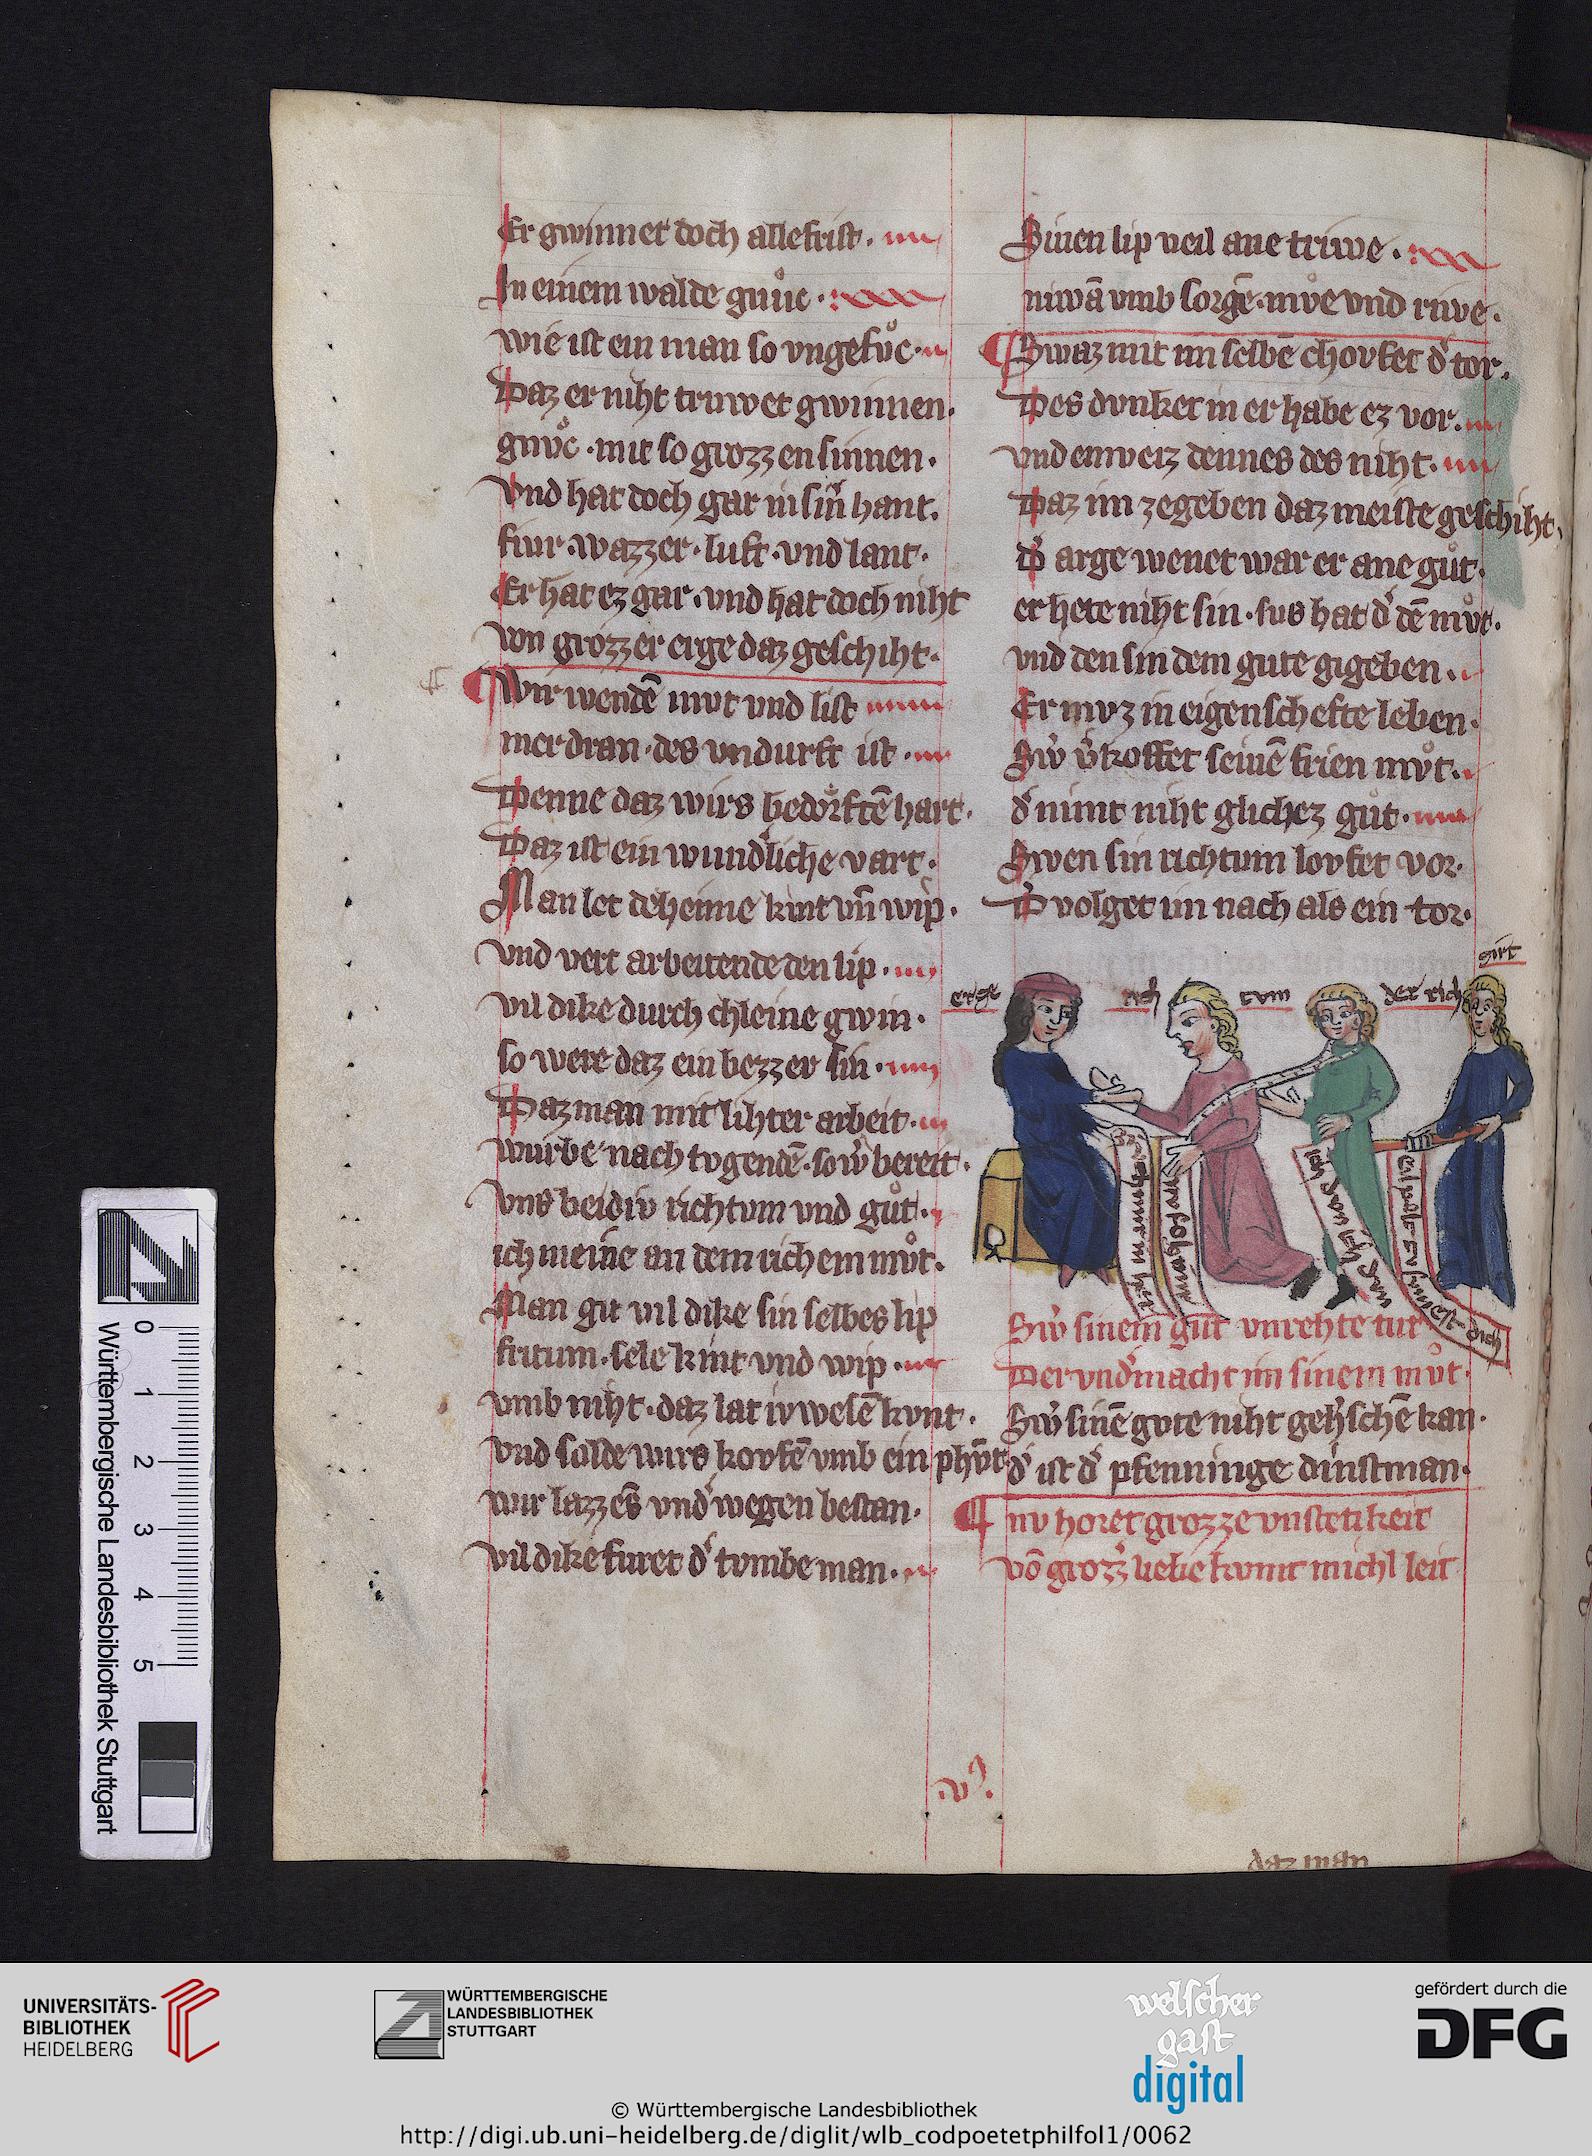 Er gwinnet doch alle frist.
In einem walde gnuͦc.
wie ist ein man so vngefuͦc.
Daz er niht truwet gwinnen.
gnuͦc. mit so grozzen sinnen.
Vnd hat doch gar in siner hant.
fiur. wazzer. luft. vnd lant.
Er hat ez gar. vnd hat doch niht
von grozzer erge daz geschiht.
Wir wendē mvt vnd list
mer dran. des vndurft ist.
Denne daz wirs bedorftē hart.
Daz ist ein wund͛liche vart.
Man let deheime kint vn̄ wip.
vnd vert arbeitende den lip.
vil dike durch chleine gwin.
so were daz ein bezzer sin.
Daz man mit lihter arbeit.
wurbe nach tvgendē. so w͛ bereit.
vns beidiv richtvm vnd guͦt.
ich meine an dem richem muͦt.
Man git vil dike sin selbes lip
fritum. sele kint vnd wip.
vmb niht. daz lat iv wesē kvnt.
vnd solde wirs kovfē vmb ein phvͦt
wir lazzēs vnd͛wegen bestan.
vil dike furet d͛ tvmbe man.
Sinen lip veil ane triwe.
niwā vmb sorgē. muͦe vnd riwe.
Swaz mit im selbē chovfet d͛ tor.
Des dvnket in er habe ez vor.
vnd enweiz dennes des niht.
Daz im zegeben daz meiste geschiht.
D͛ arge wenet war er ane guͦt.
er hete niht sin. sus hat d͛ dē muͦt.
vnd den sin dem gute gigeben.
Er mvz in eigenschefte leben.
Sw͛ v͛koffet seinē frien muͦt.
d͛ nimt niht glichez guͦt.
Swen sin richtum lovfet vor.
D͛ volget im nach als ein tor.
erge
rich
tvm
der rich
girt
ich
dich
Sw͛ sinem gut vnrehte tut
Der vnd͛macht im sinem muͦt.
Sw͛ sinē gvte niht geh͛schē kan.
d͛ ist d͛ pfenninge dinstman.
nv horet grozze vnstetikeit
vō grozz͛ liebe kvmt michl leit
.v⁹.
daz man
Württembergische Landesbibliothek Stuttgart
0 1 2 3 4 5
UNIVERSITÄTS-
BIBLIOTHEK
HEIDELBERG
WÜRTTEMBERGISCHE
LANDESBIBLIOTHEK
STUTTGART
welscher
gast
digital
gefördert durch die
DFG
© Württembergische Landesbibliothek
http://digi.ub.uni-heidelberg.de/diglit/wlb_codpoetetphilfol1/0062